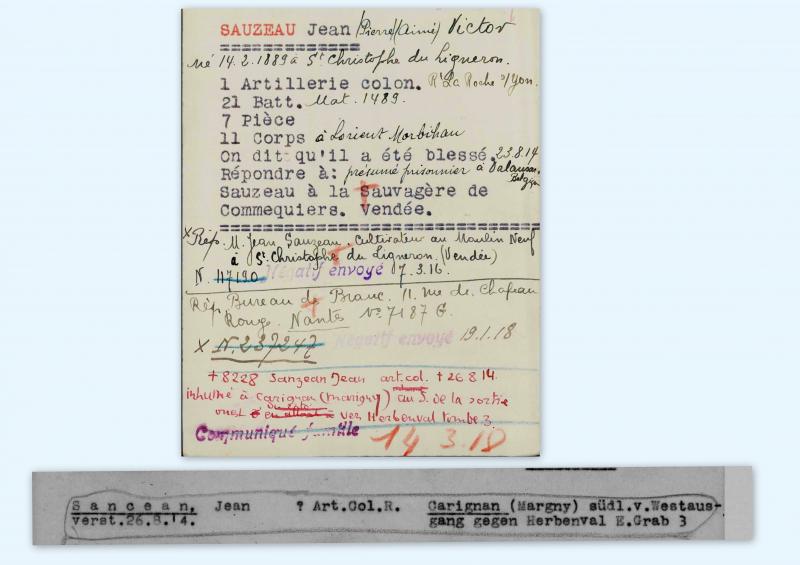 SAUZEAU Jean (Pierre)(Aimé) Victor
né 14.2.1889 à St Christophe du Ligneron.
1 Artillerie colon. Rt La Roche s/Yon.
21 Batt. Mat. 1489.
7 Pièce
11 Corps à Lorient Morbihan
On dit qu'il a été blessé. 23.8.14
Répondre à: présumé prisonnier à
Sauzeau à la Sauvagère de
Commequiers. Vendée.
X Rép. M. Jean Sauzeau. Cultivateur au Moulin Neuf
à St. Christophe du Ligneron. (Vendée)
N. 117190 Négatif envoyé 7.3.16.
Rép. Bureau de Franc. 11. rue de Chapeau
Rouge. Nantes No 7187 G.
X N. 237247 Négatif envoyé 19.1.18
+ 8228 Sanzean Jean art.col. + 26 8 14.
inhumé à Carignan (Margny) au S. de la sortie
ouest vers Herbenval tombe 3
Communiqué famille 14 3.18
Sancean, Jean ? Art.Col.R. Carignan (Margny) südl.v.Westaus-
verst.26.8.'4. gang gegen Herbenval E.Grab 3